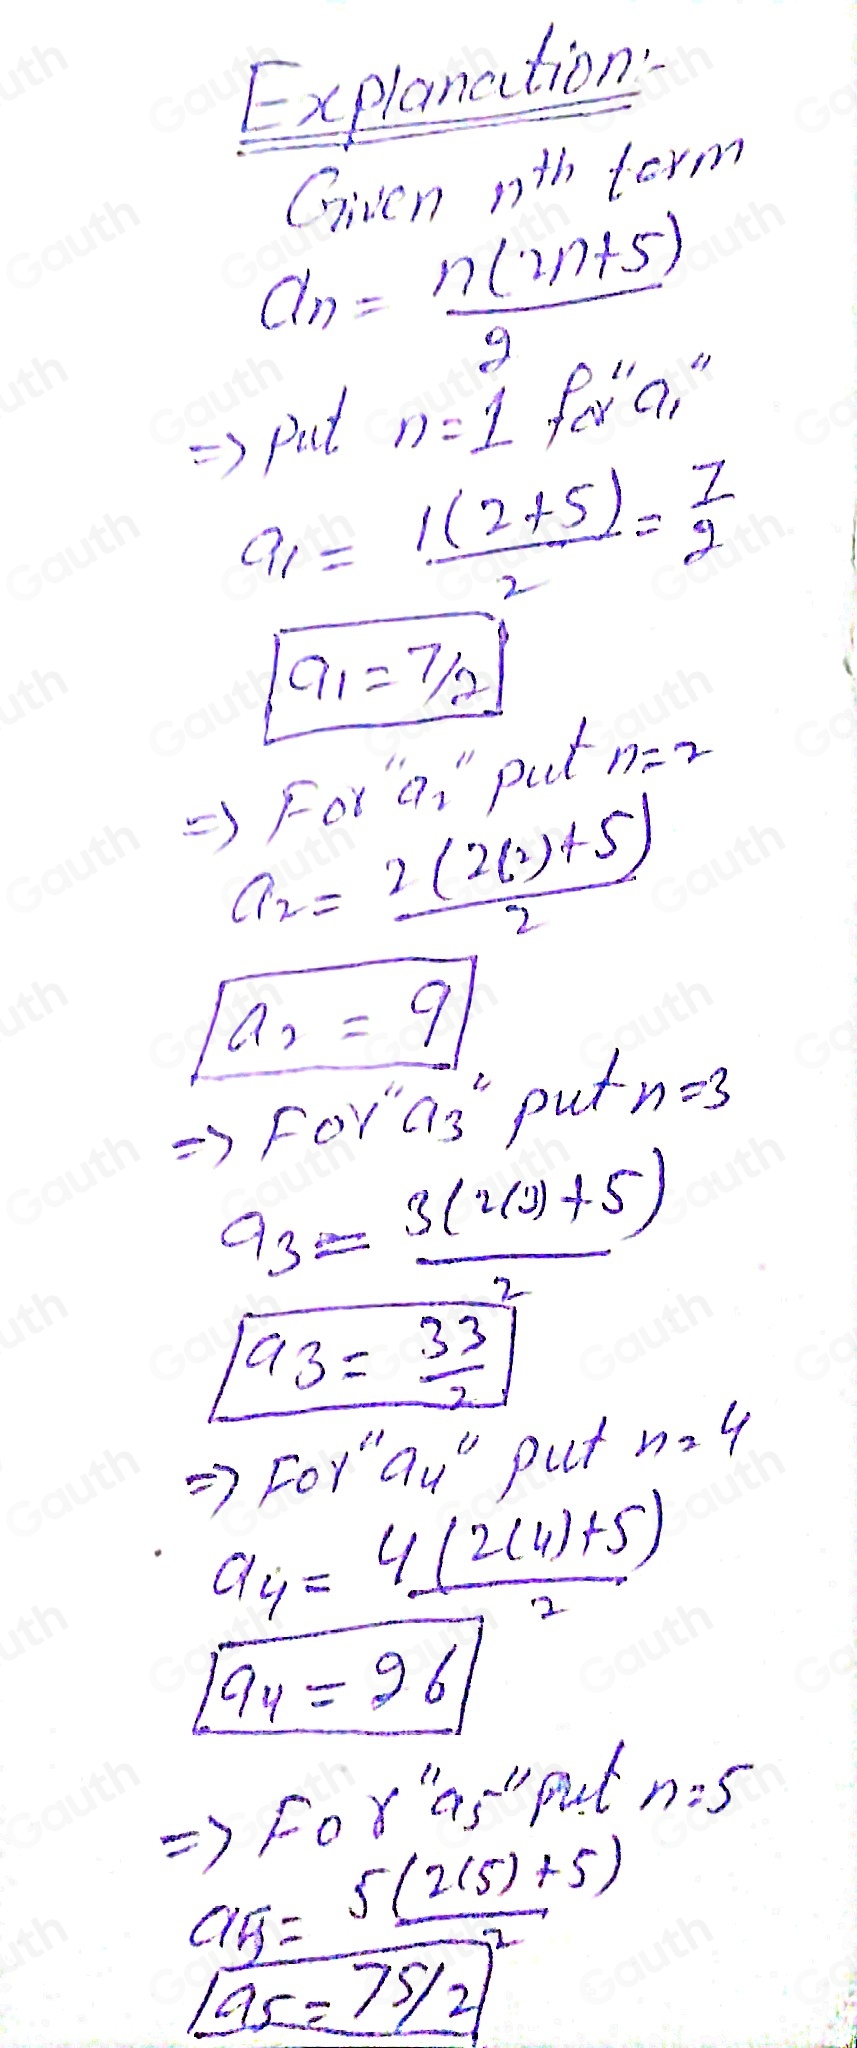 Explanation:-
Given nth term
an = n(2n+5)
2
=> put n=1 for "a1"
a1 = 1(2+5) = 7
2 2
a1 = 7/2
=> For "a2" put n=2
a2 = 2(2(2)+5)
2
a2 = 9
=> For "a3" put n=3
a3 = 3(2(3)+5)
2
a3 = 33
2
=> For "a4" put n=4
a4 = 4(2(4)+5)
2
a4 = 26
=> For "a5" put n=5
a5 = 5(2(5)+5)
2
a5 = 75/2